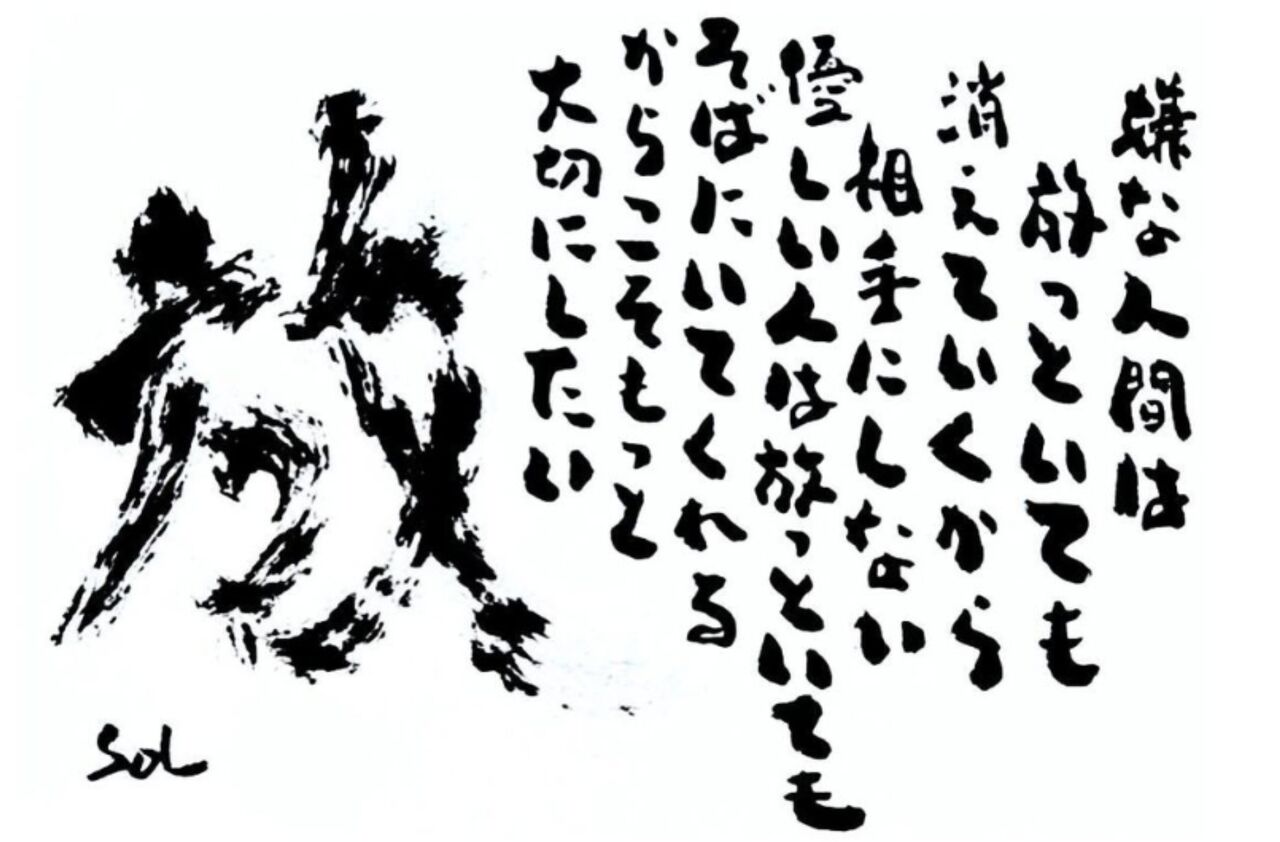 嫌な人間は
放っといても
消えていくから
相手にしない
優しい人は放っといても
そばにいてくれる
からこそもっと
大切にしたい
放
SOL